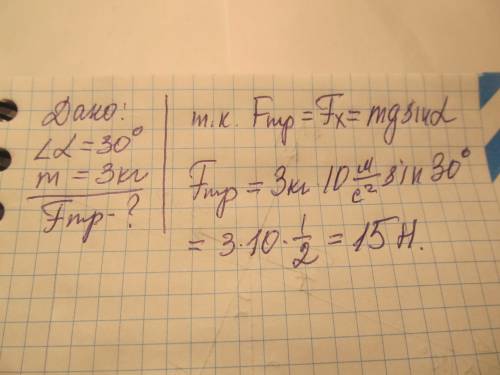 Дано:
∠α = 30°
m = 3кг
Fтр - ?
т.к. Fтр = Fx = mg sinα
Fтр = 3кг 10 м/с² sin 30°
= 3·10·1/2 = 15 Н.